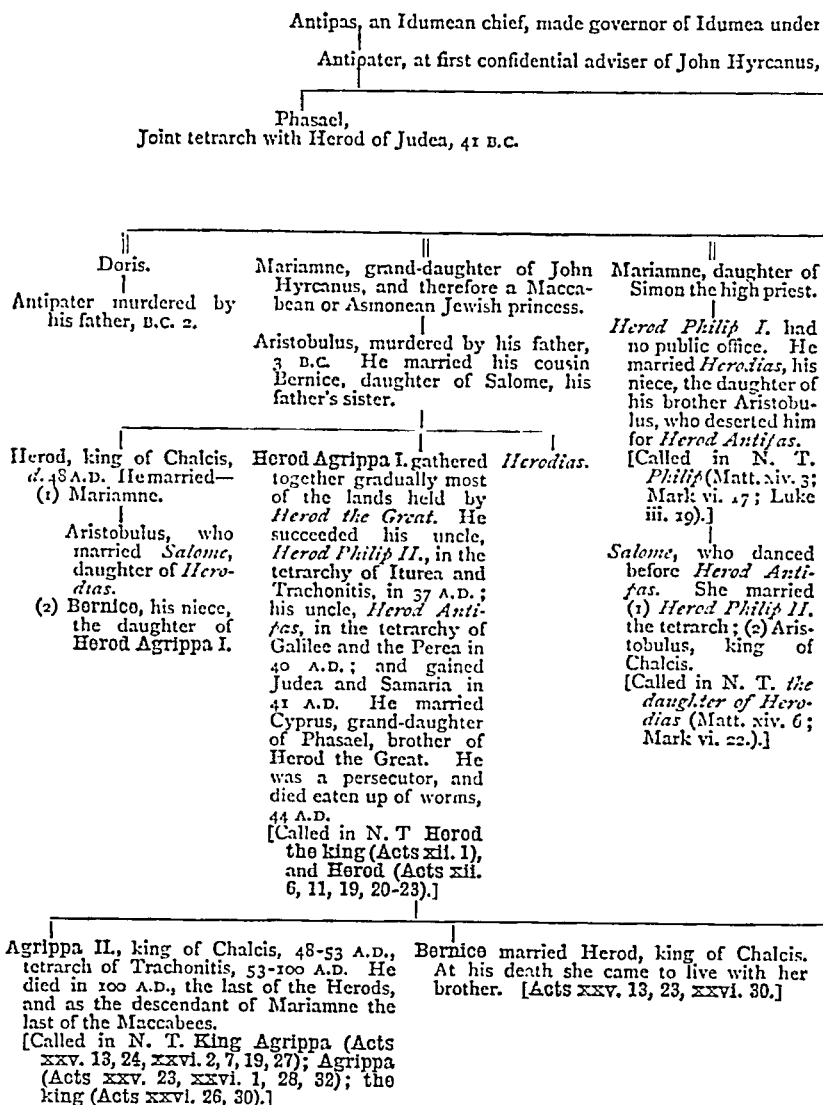 Antipas, an Idumean chief, made governor of Idumea under
Antipater, at first confidential adviser of John Hyrcanus,
Phasael,
Joint tetrarch with Herod of Judea, 41 B.C.
Doris.
Antipater murdered by
his father, B.C. 2.
Mariamne, grand-daughter of John
Hyrcanus, and therefore a Macca-
bean or Asmonean Jewish princess.
Aristobulus, murdered by his father,
3 B.C. He married his cousin
Bernice, daughter of Salome, his
father's sister.
Mariamne, daughter of
Simon the high priest.
Herod Philip I. had
no public office. He
married Herodias, his
niece, the daughter of
his brother Aristobu-
lus, who deserted him
for Herod Antipas.
[Called in N. T.
Philip (Matt. xiv. 3;
Mark vi. 17; Luke
iii. 19).]
Salome, who danced
before Herod Anti-
pas. She married
(1) Herod Philip II.
the tetrarch; (2) Aris-
tobulus, king of
Chalcis.
[Called in N. T. the
daughter of Hero-
dias (Matt. xiv. 6;
Mark vi. 22.).]
Herod, king of Chalcis,
d. 48 A.D. He married—
(1) Mariamne.
Aristobulus, who
married Salome,
daughter of Hero-
dias.
(2) Bernice, his niece,
the daughter of
Herod Agrippa I.
Herod Agrippa I. gathered
together gradually most
of the lands held by
Herod the Great. He
succeeded his uncle,
Herod Philip II., in the
tetrarchy of Iturea and
Trachonitis, in 37 A.D.;
his uncle, Herod Anti-
pas, in the tetrarchy of
Galilee and the Perea in
40 A.D.; and gained
Judea and Samaria in
41 A.D. He married
Cyprus, grand-daughter
of Phasael, brother of
Herod the Great. He
was a persecutor, and
died eaten up of worms,
44 A.D.
[Called in N. T Herod
the king (Acts xii. 1),
and Herod (Acts xii.
6, 11, 19, 20-23).]
Herodias.
Agrippa II., king of Chalcis, 48-53 A.D.,
tetrarch of Trachonitis, 53-100 A.D. He
died in 100 A.D., the last of the Herods,
and as the descendant of Mariamne the
last of the Maccabees.
[Called in N. T. King Agrippa (Acts
xxv. 13, 24, xxvi. 2, 7, 19, 27); Agrippa
(Acts xxv. 23, xxvi. 1, 28, 32); the
king (Acts xxvi. 26, 30).]
Bernice married Herod, king of Chalcis.
At his death she came to live with her
brother. [Acts xxv. 13, 23, xxvi. 30.]